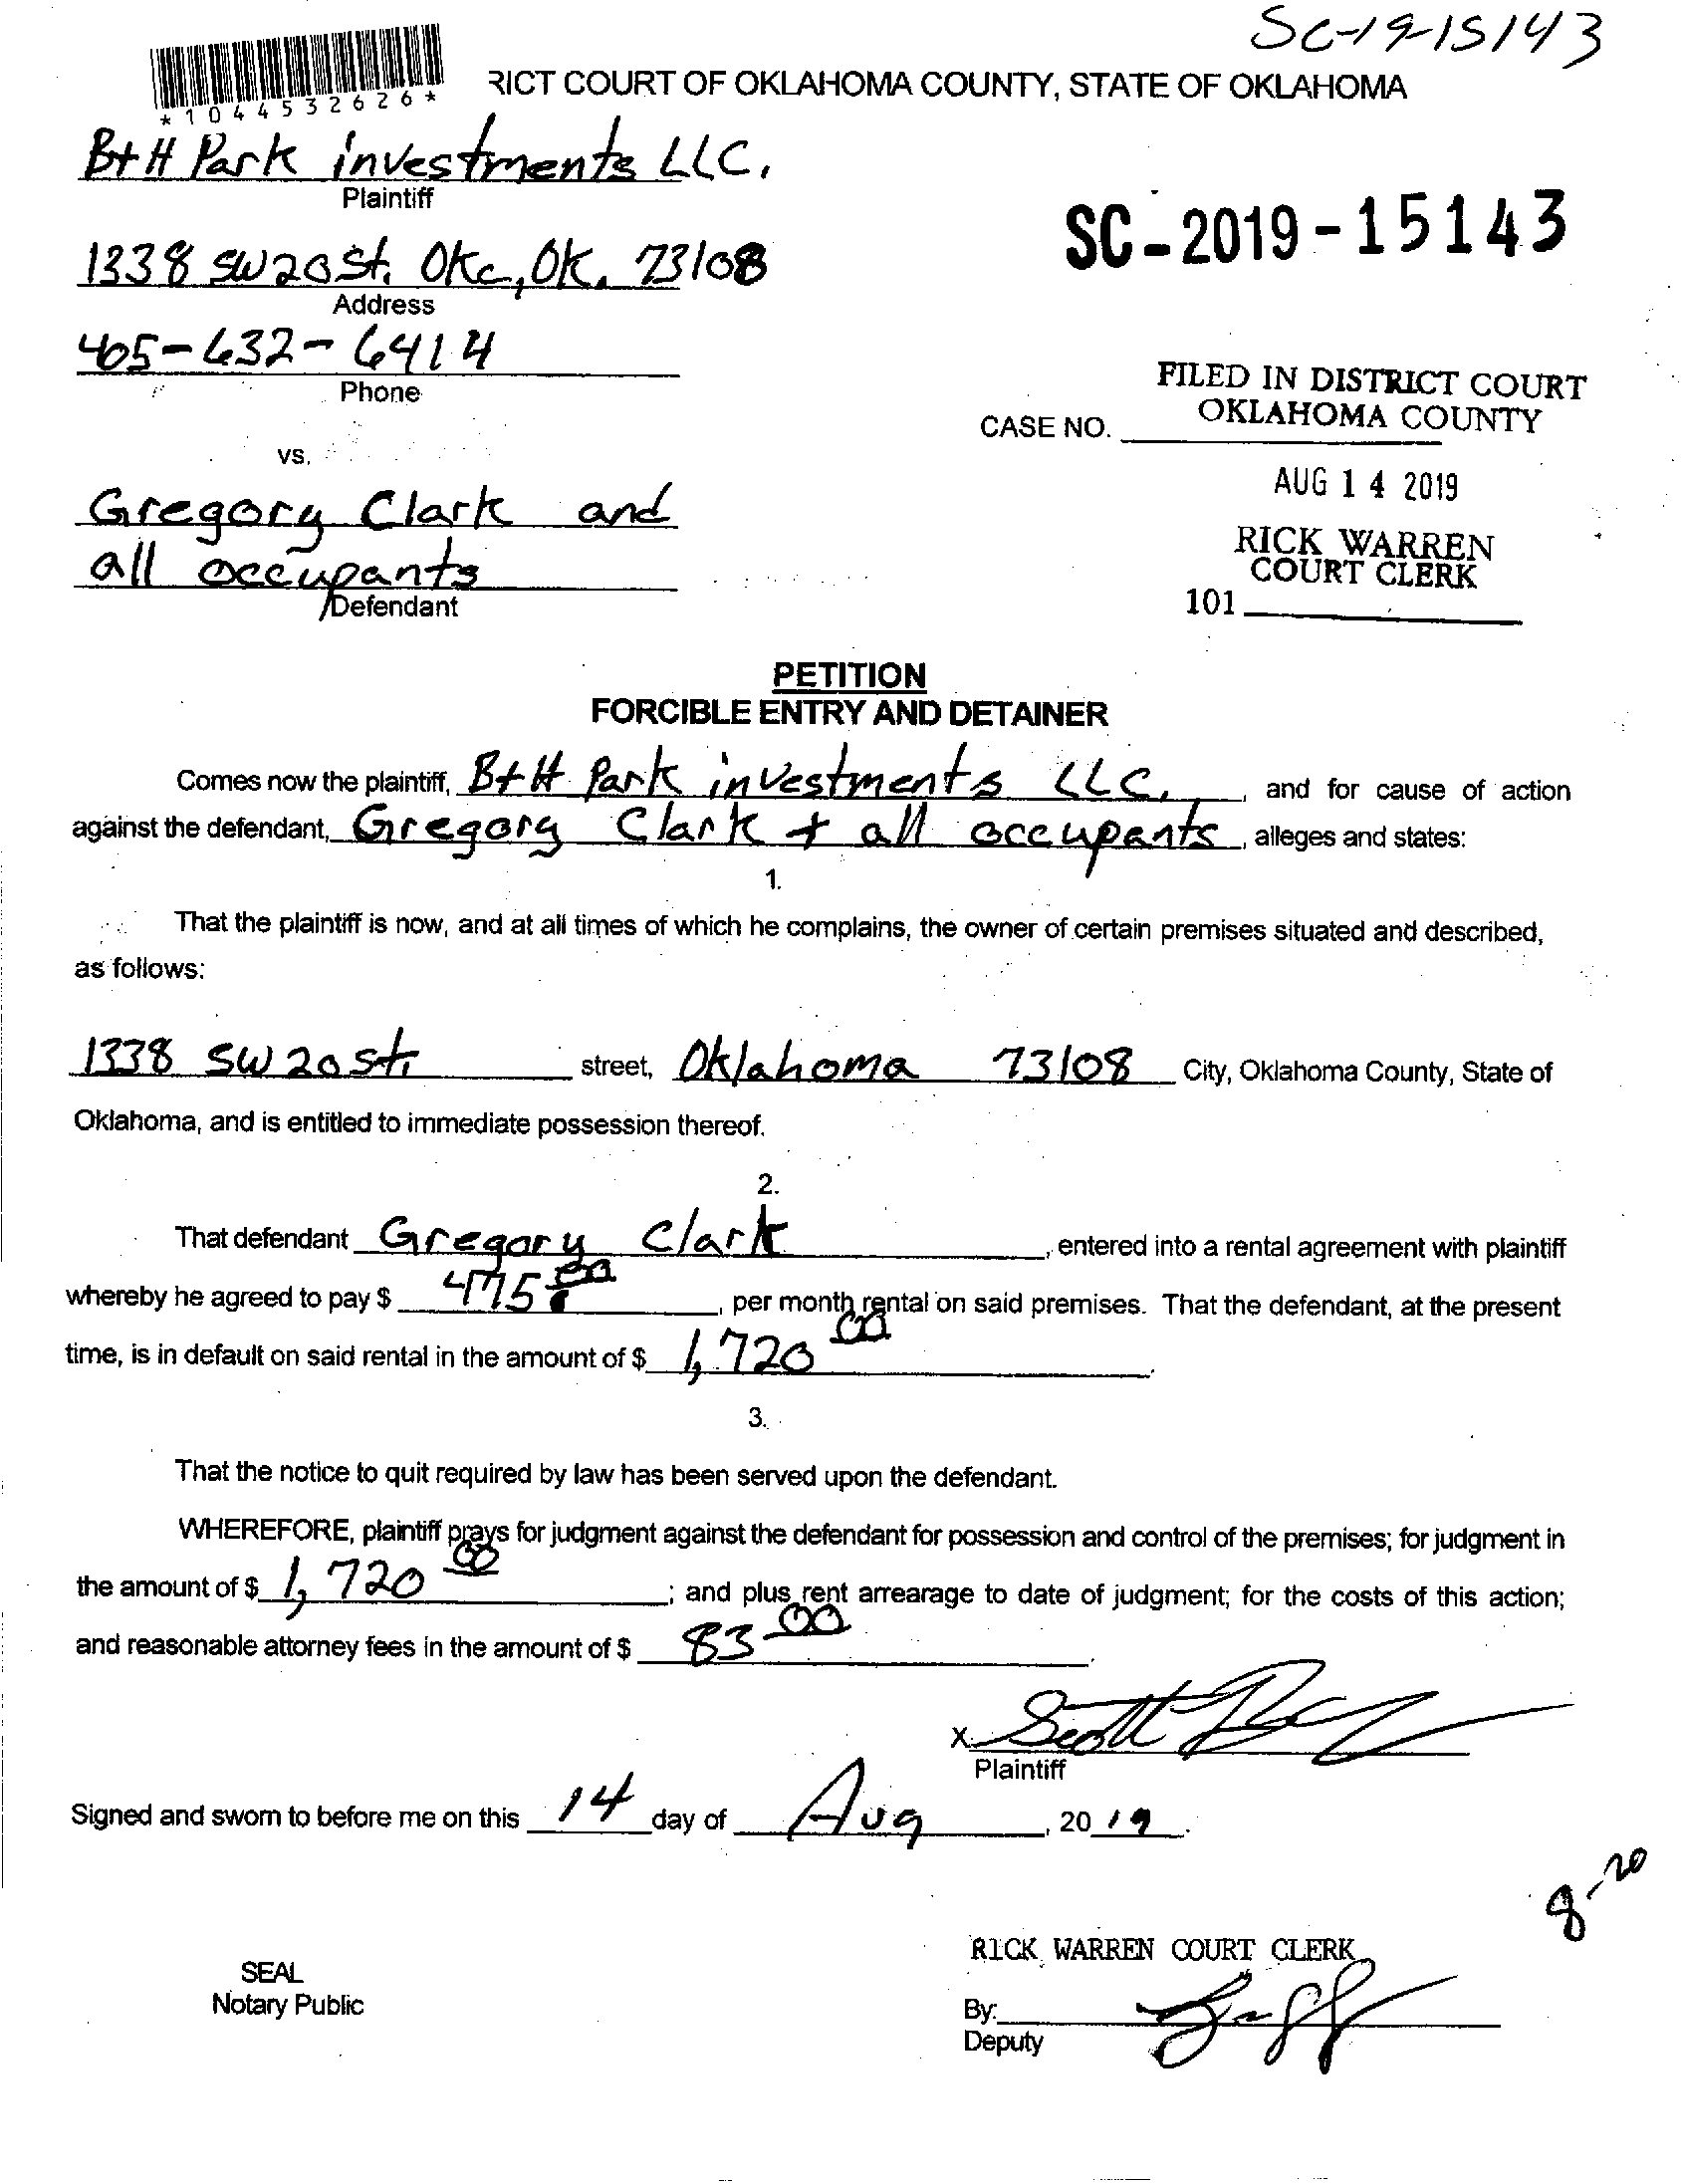 SC-19-15143
*1044532626*
RICT COURT OF OKLAHOMA COUNTY, STATE OF OKLAHOMA
B+H Park investments LLC.
Plaintiff
SC-2019-15143
1338 SW 20 St. Okc, OK. 73108
Address
405-632-6414
Phone
FILED IN DISTRICT COURT
OKLAHOMA COUNTY
CASE NO.
vs.
AUG 14 2019
Gregory Clark and
all occupants
Defendant
RICK WARREN
COURT CLERK
101
PETITION
FORCIBLE ENTRY AND DETAINER
Comes now the plaintiff, B+H Park investments LLC. , and for cause of action
against the defendant, Gregory Clark + all occupants , alleges and states:
1.
That the plaintiff is now, and at all times of which he complains, the owner of certain premises situated and described,
as follows:
1338 SW 20 St. street, Oklahoma 73108 City, Oklahoma County, State of
Oklahoma, and is entitled to immediate possession thereof.
2.
That defendant Gregory Clark , entered into a rental agreement with plaintiff
whereby he agreed to pay $ 475.00 , per month rental on said premises. That the defendant, at the present
time, is in default on said rental in the amount of $ 1,720 00 .
3.
That the notice to quit required by law has been served upon the defendant.
WHEREFORE, plaintiff prays for judgment against the defendant for possession and control of the premises; for judgment in
the amount of $ 1,720 00 ; and plus rent arrearage to date of judgment; for the costs of this action;
and reasonable attorney fees in the amount of $ 83 00 .
X Scott
Plaintiff
Signed and sworn to before me on this 14 day of Aug , 20 19 .
8-20
RICK WARREN COURT CLERK
SEAL
Notary Public
By:
Deputy